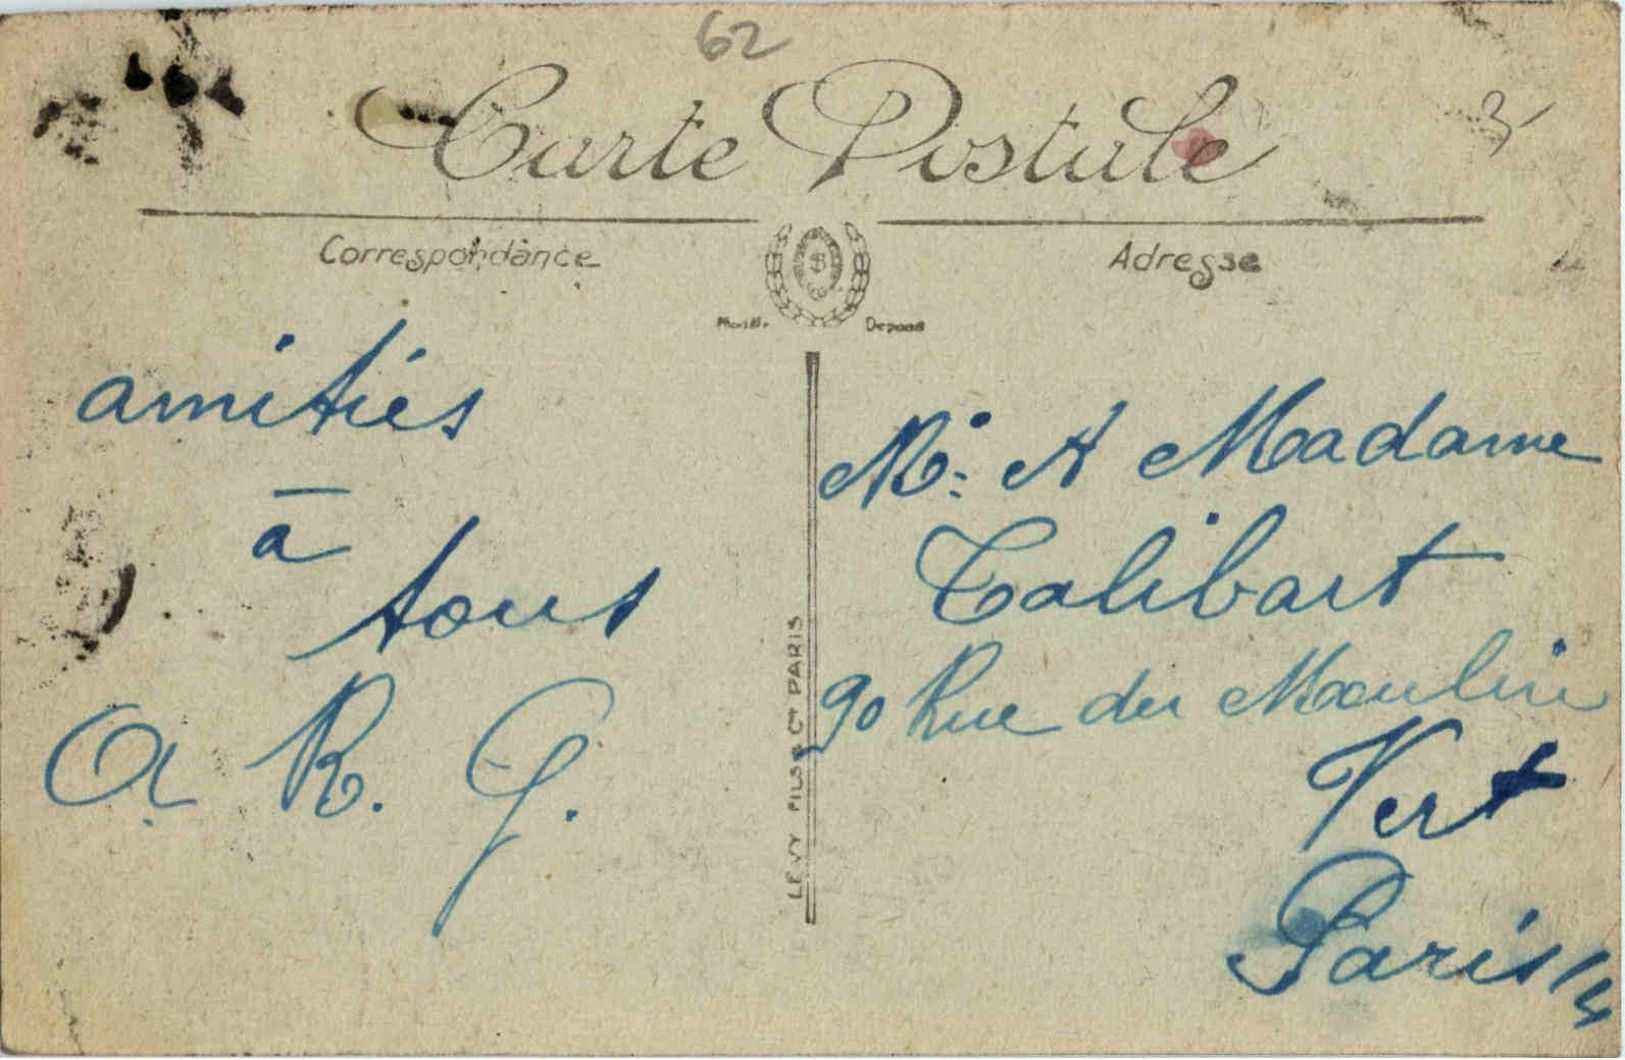 62
Carte Postale
3
Correspondance
Adresse
Déposé
amitiés
à
tous
A R. G.
LEVY FILS & Cie PARIS
Mr. & Madame
Talibart
90 Rue du Moulin
Vert
Paris 14